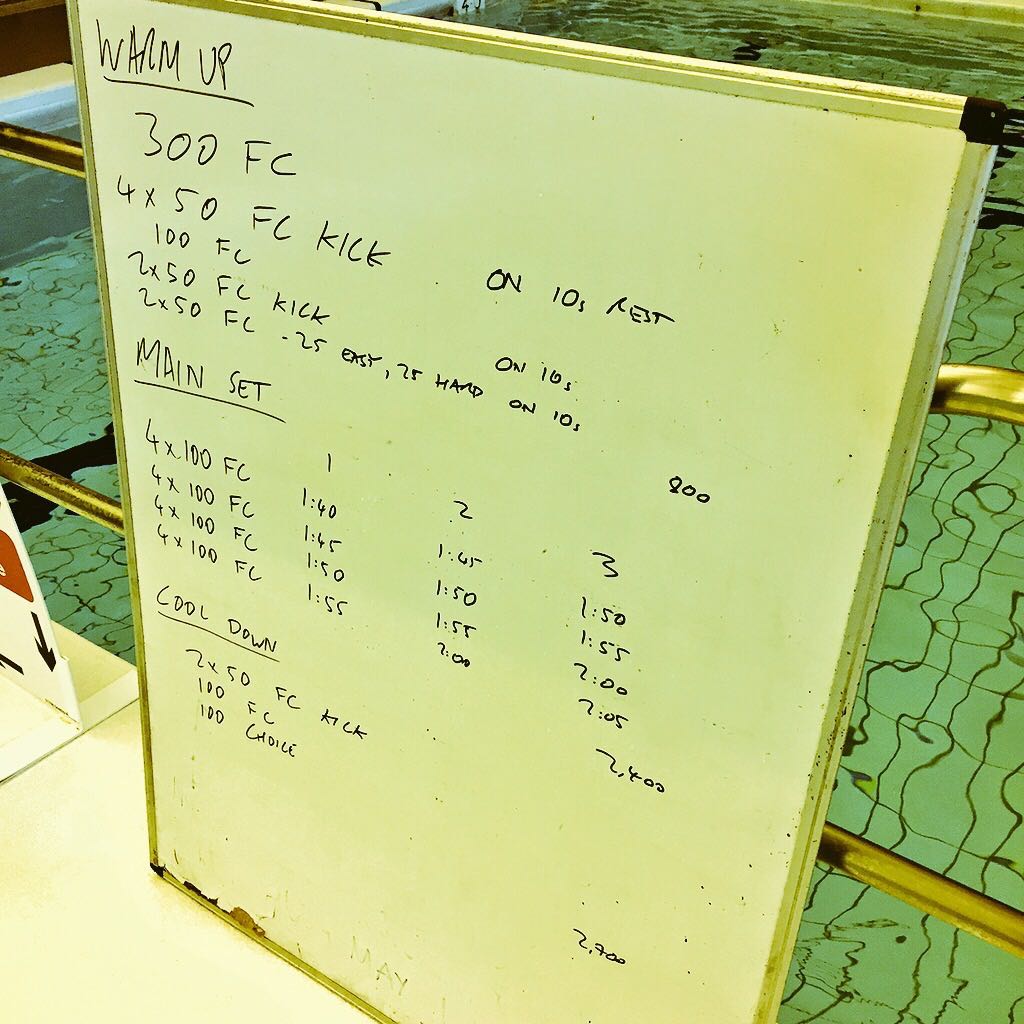 WARM UP
300 FC
4 x 50 FC KICK ON 10s REST
100 FC
2x50 FC KICK ON 10s
2x50 FC - 25 EASY, 25 HARD ON 10s
800
MAIN SET
1 2 3
4x100 FC 1:40 1:45 1:50
4x100 FC 1:45 1:50 1:55
4x100 FC 1:50 1:55 2:00
4x100 FC 1:55 2:00 2:05
2,400
COOL DOWN
2x50 FC KICK
100 FC
100 CHOICE
2,700
MAY